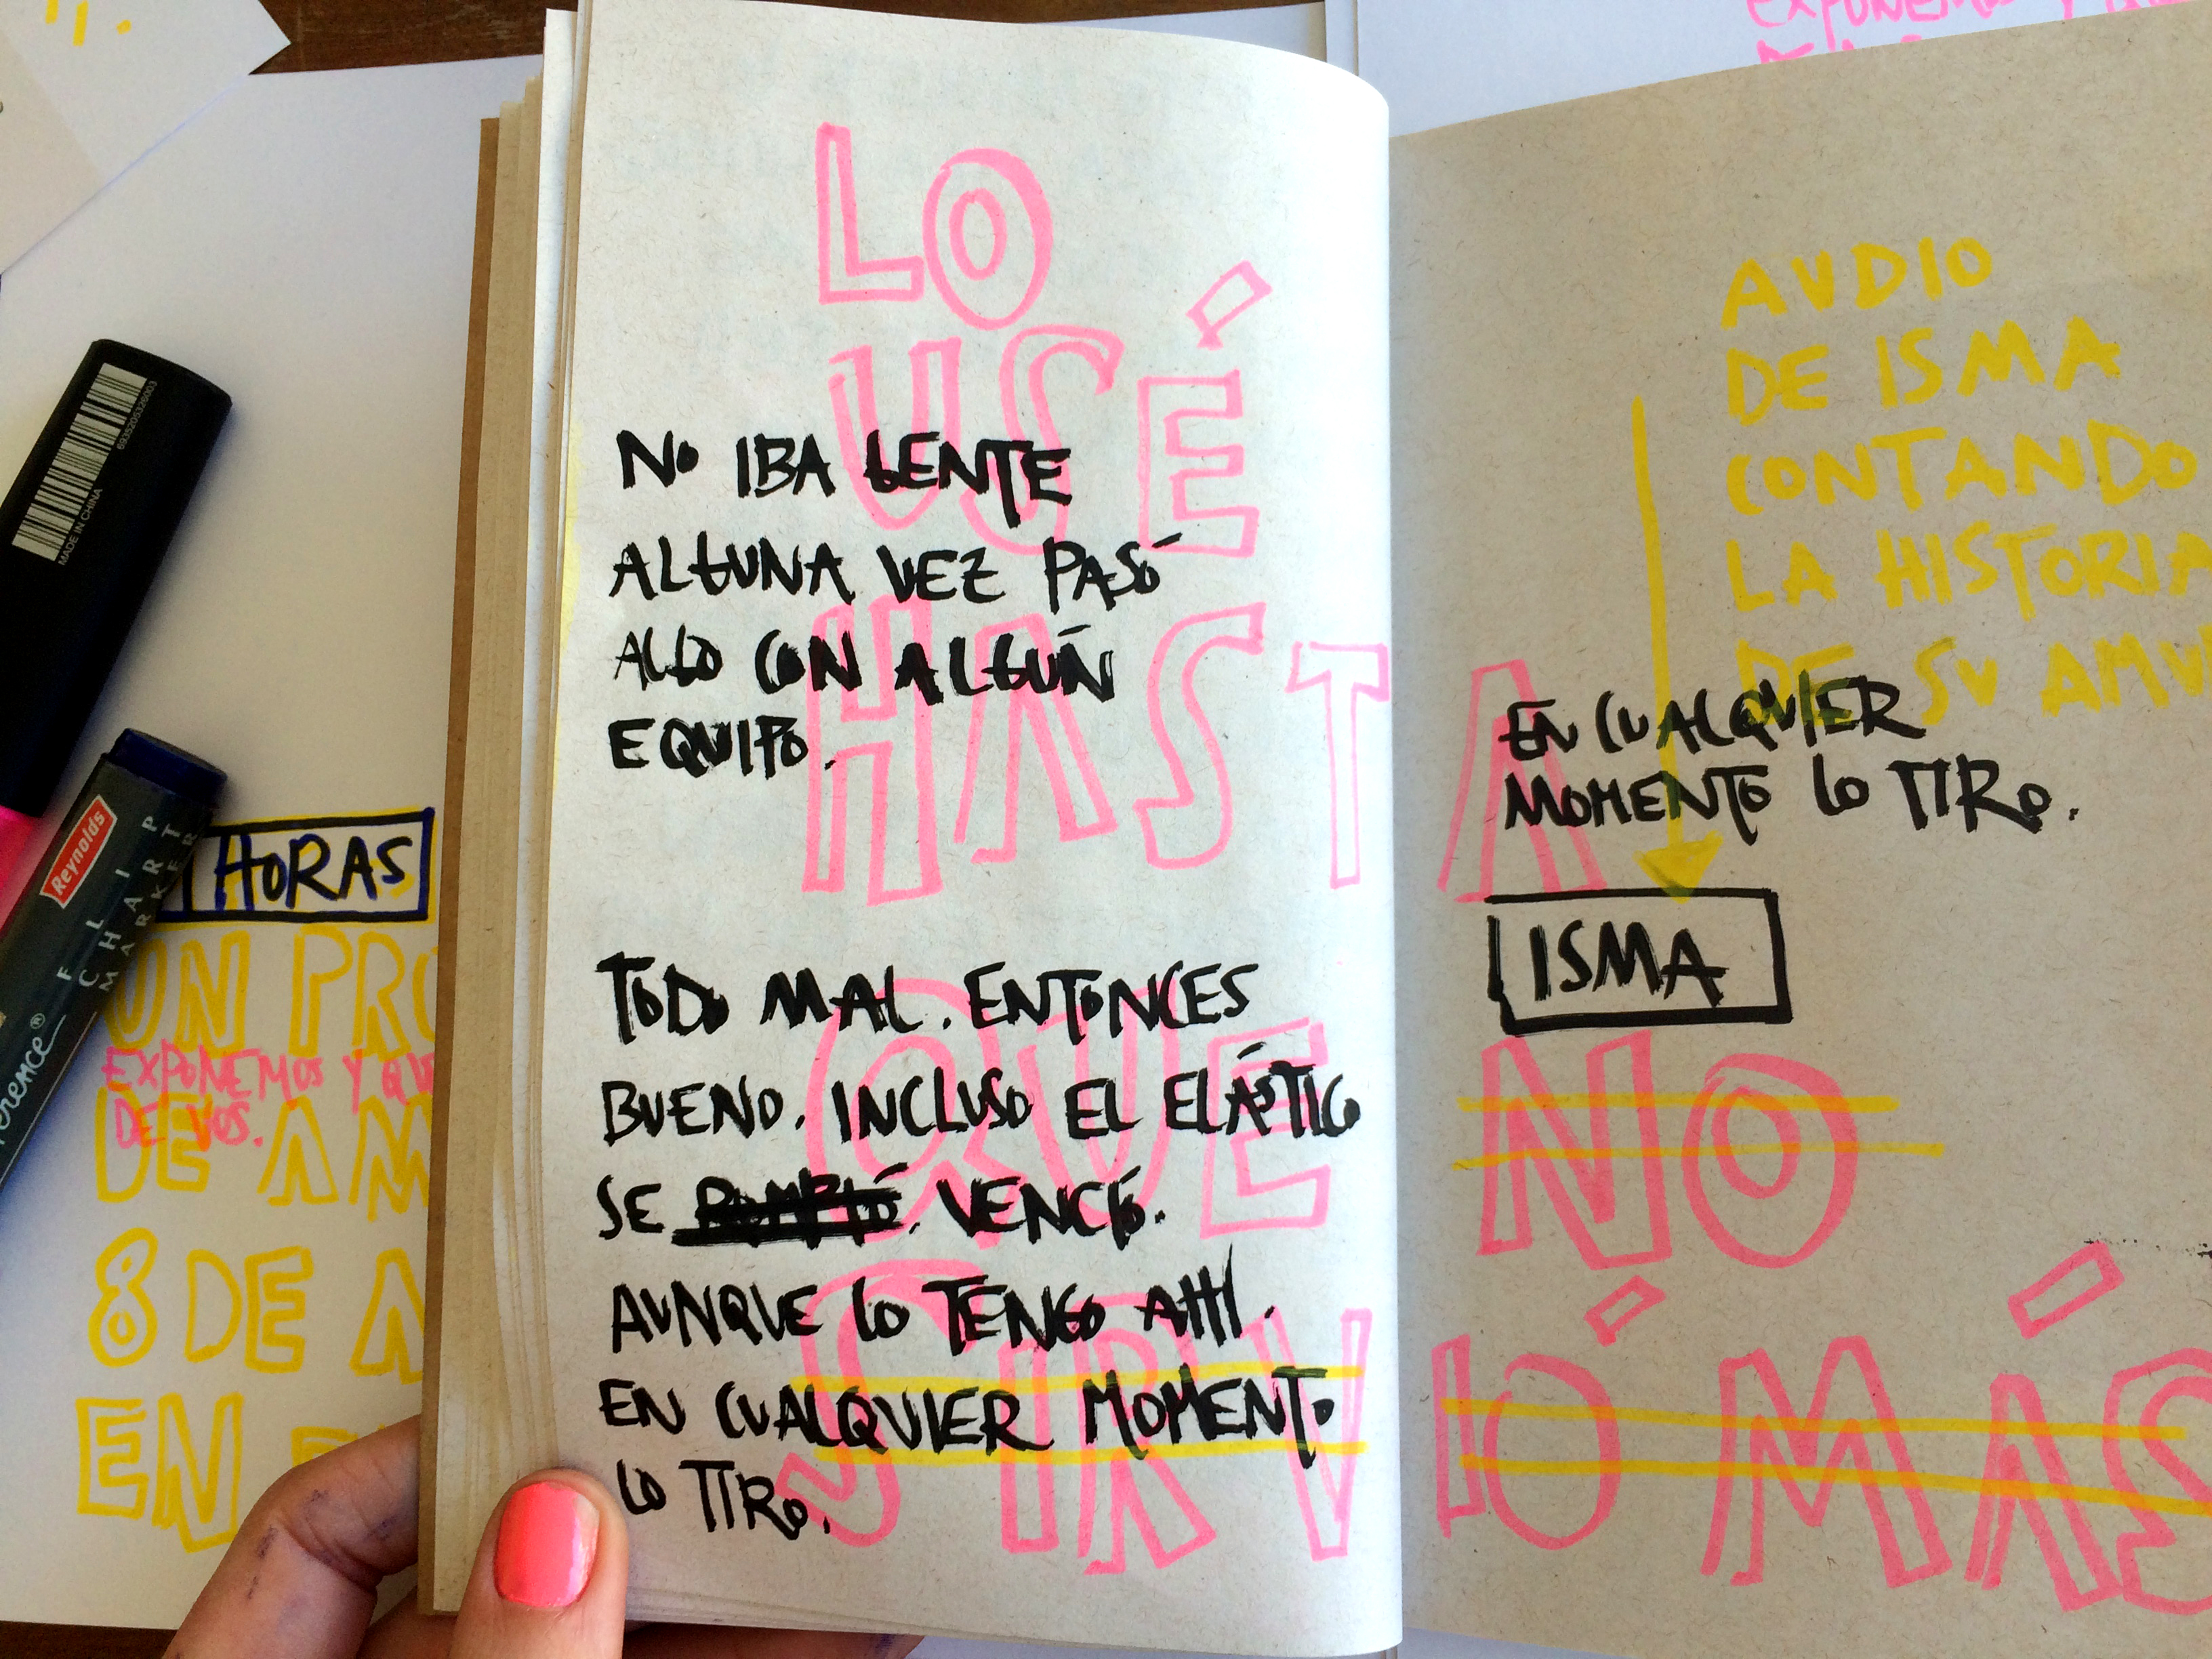 EXPONEMOS Y
LO
USÉ
HASTA
QUE
NO
SIRVIÓ MÁS
NO IBA GENTE
ALGUNA VEZ PASÓ
ALGO CON ALGÚN
EQUIPO.
TODO MAL. ENTONCES
BUENO. INCLUSO EL ELÁSTICO
SE ROMPIÓ. VENCIÓ.
AUNQUE LO TENGO AHÍ.
EN CUALQUIER MOMENTO
LO TIRO.
AUDIO
DE ISMA
CONTANDO
LA HISTORIA
DE SU AMU
EN CUALQUIER
MOMENTO LO TIRO.
ISMA
HORAS
UN PRO
EXPONEMOS Y QUE
DE VOS.
DE AM
8 DE
EN
6935205326003
MADE IN CHINA
Reynolds
FLIP
CHART
MARKER